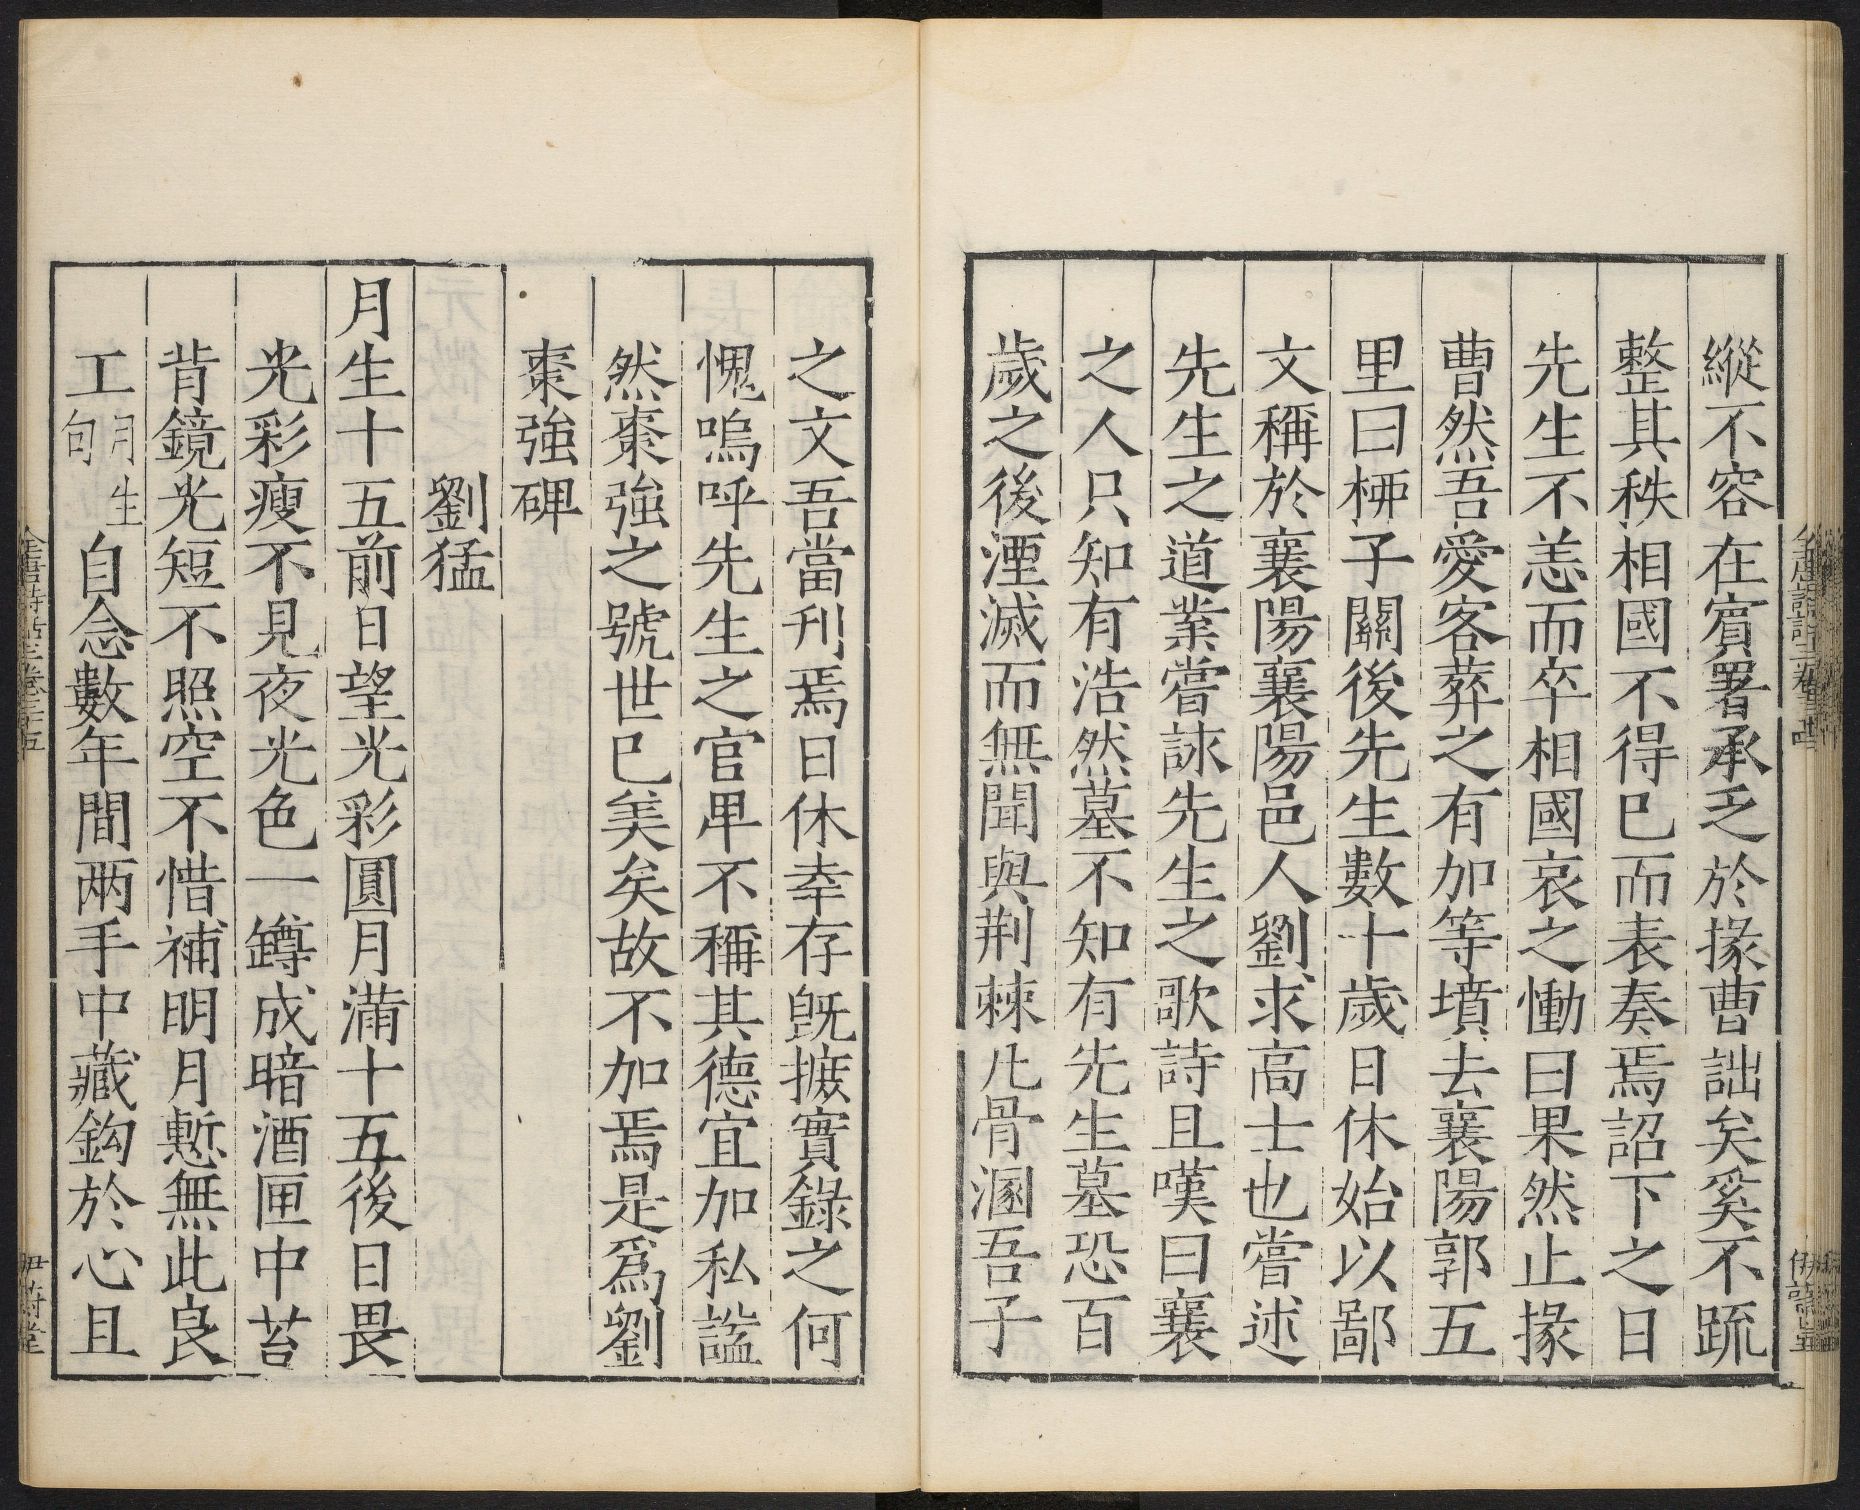 縱不容在賓署承乏於掾曹詘矣奚不䟽
整其秩相國不得巳而表奏焉詔下之日
先生不恙而卒相國哀之慟曰果然止掾
曹然吾愛客葬之有加等墳去襄陽郭五
里曰柳子關後先生數十歲日休始以鄙
文稱於襄陽襄陽邑人劉求高士也嘗述
先生之道業嘗詠先生之歌詩且嘆曰襄
之人只知有浩然墓不知有先生墓恐百
歲之後湮滅而無聞與荆棘凡骨溷吾子
之文吾當刋焉日休幸存旣摭實錄之何
愧嗚呼先生之官卑不稱其德宜加私諡
然棗強之號世巳美矣故不加焉是爲劉
棗強碑
劉猛
月生十五前日望光彩圓月滿十五後日畏
光彩瘦不見夜光色一罇成暗酒匣中苔
背鏡光短不照空不惜補明月慙無此良
工月生句自念數年間兩手中藏鈎於心且